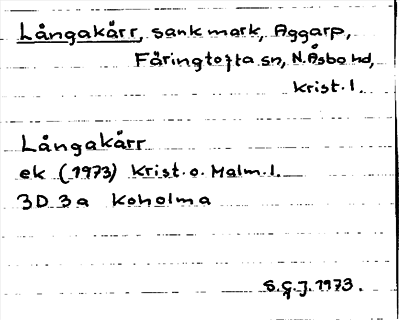 Långakärr, sank mark, Aggarp,
Färingtofta sn, N. Åsbo hd,
Krist. l.
Långakärr
ek (1973) Krist. o. Malm. l.
3D 3a Koholma
S.G.J. 1973.